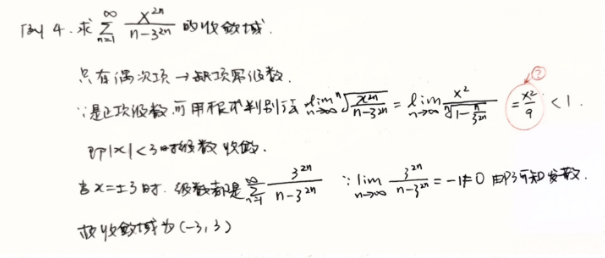 例4. 求 ∑_{n=1}^{∞} x^{2n}/(n-3^{2n}) 的收敛域.
只有偶次项 → 缺项幂级数.
∵是正项级数 可用根式判别法 lim_{n→∞} ⁿ√(x^{2n}/(n-3^{2n})) = lim_{n→∞} x²/ⁿ√(1-n/3^{2n}) = x²/9 < 1. ?
即|x|<3时级数收敛.
当x=±3时. 级数都是 ∑_{n=1}^{∞} 3^{2n}/(n-3^{2n}) ∵ lim_{n→∞} 3^{2n}/(n-3^{2n}) = -1≠0 可知发散.
故收敛域为(-3,3)